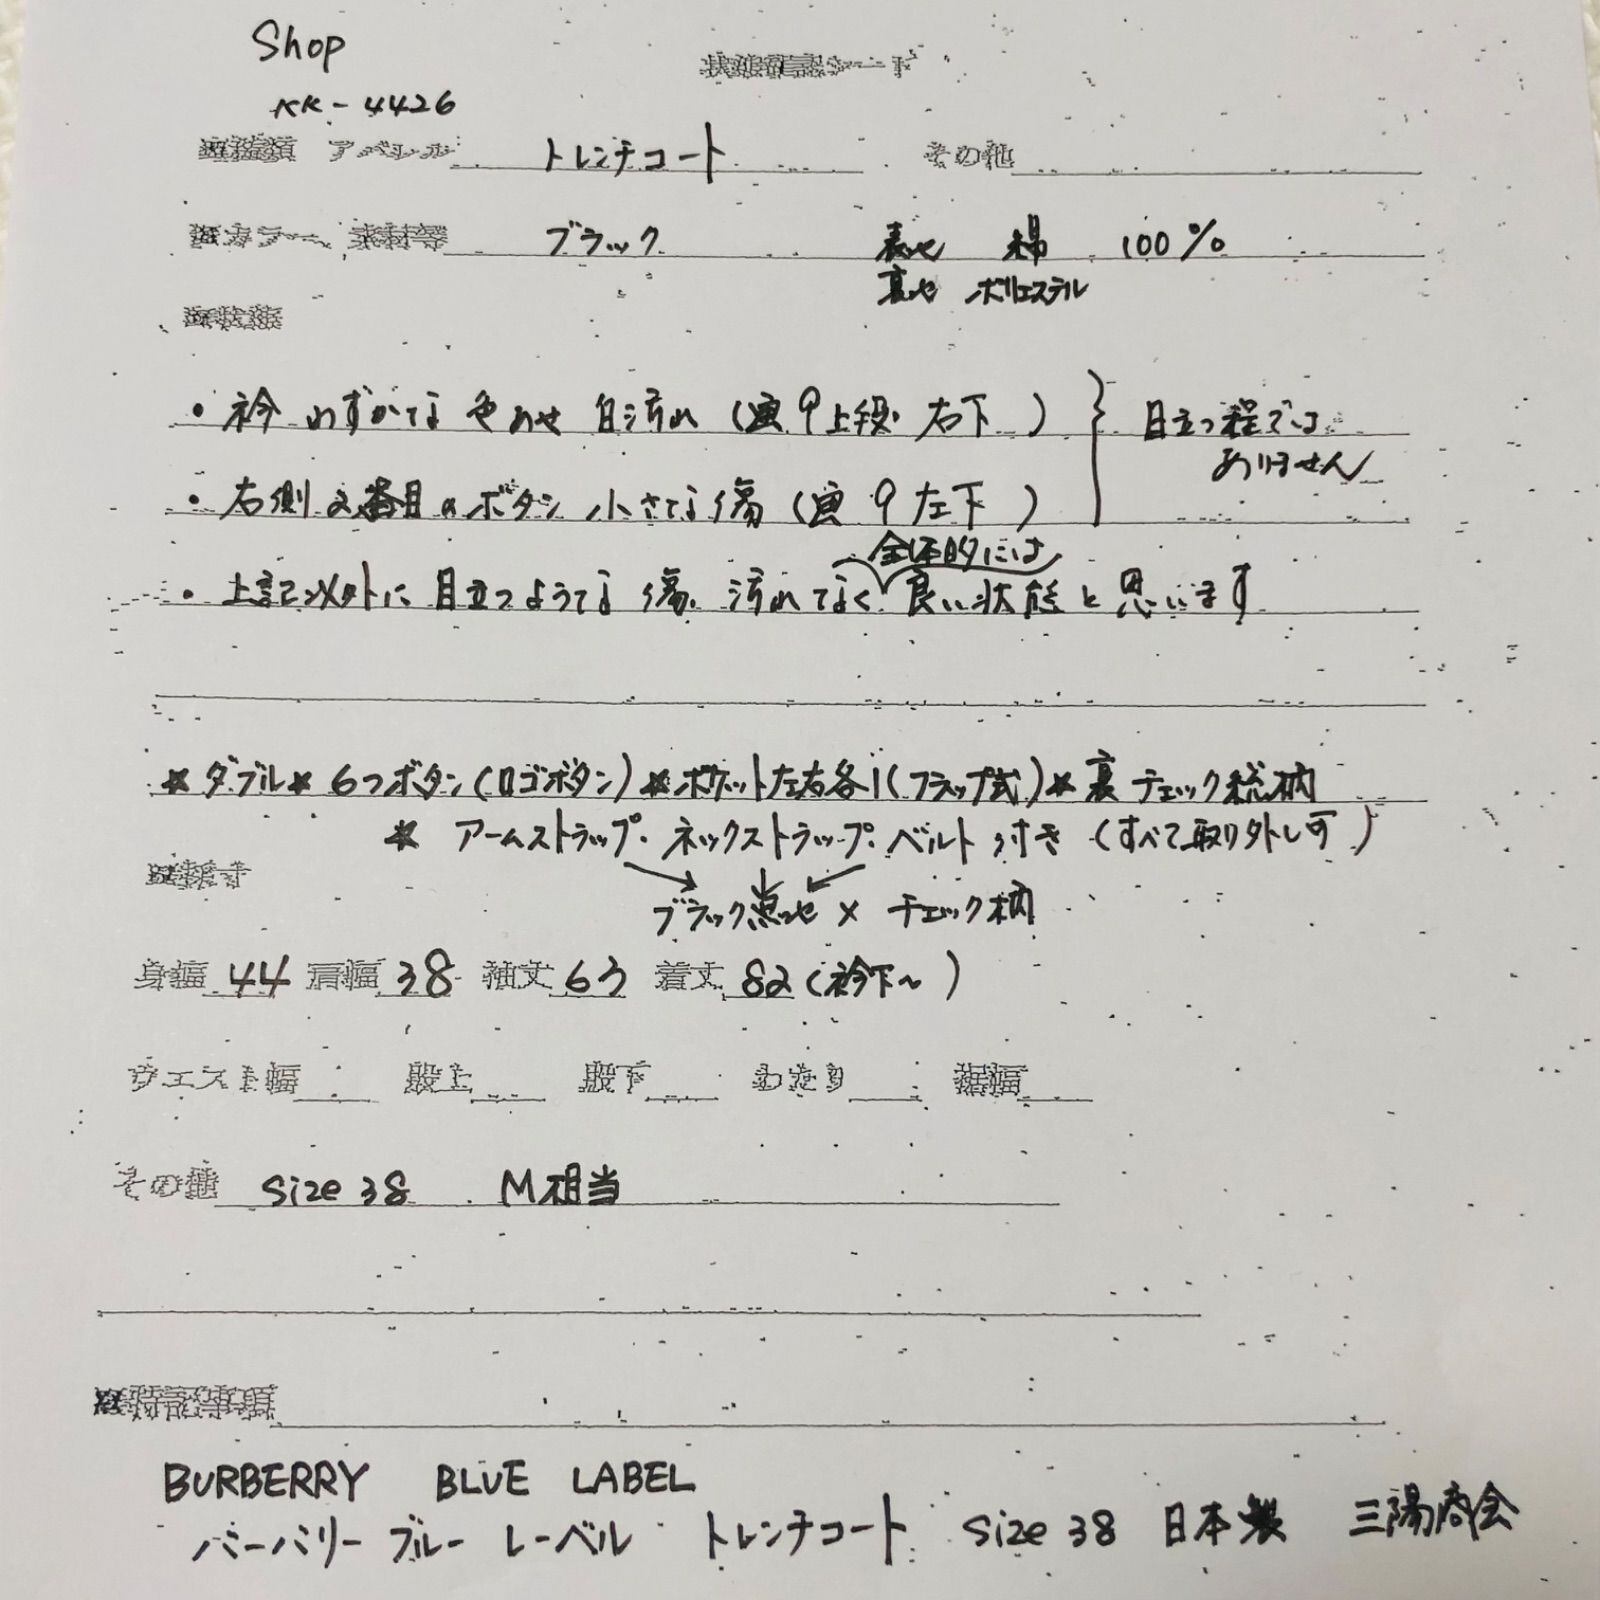 Shop
状態確認シート
KK-4426
種類 アパレル トレンチコート その他
カラー、素材等 ブラック 表地 綿 100%
裏地 ポリエステル
状態
・衿 わずかな色あせ 白汚れ (画9上段・右下) } 目立つ程では
ありません
・右側2番目のボタン 小さな傷 (画9左下)
全体的には
・上記以外に目立つような傷、汚れなく 良い状態と思います
★ダブル★6つボタン(ロゴボタン)★ポケット左右各1(フラップ式)★裏 チェック総柄
★ アームストラップ・ネックストラップ・ベルト付き (すべて取り外し可)
採寸
ブラック無地 × チェック柄
身幅 44 肩幅 38 袖丈 63 着丈 82 (衿下〜)
ウエスト幅 股上 股下 わたり 裾幅
その他 size 38 M相当
特記事項
BURBERRY BLUE LABEL
バーバリー ブルー レーベル トレンチコート size 38 日本製 三陽商会